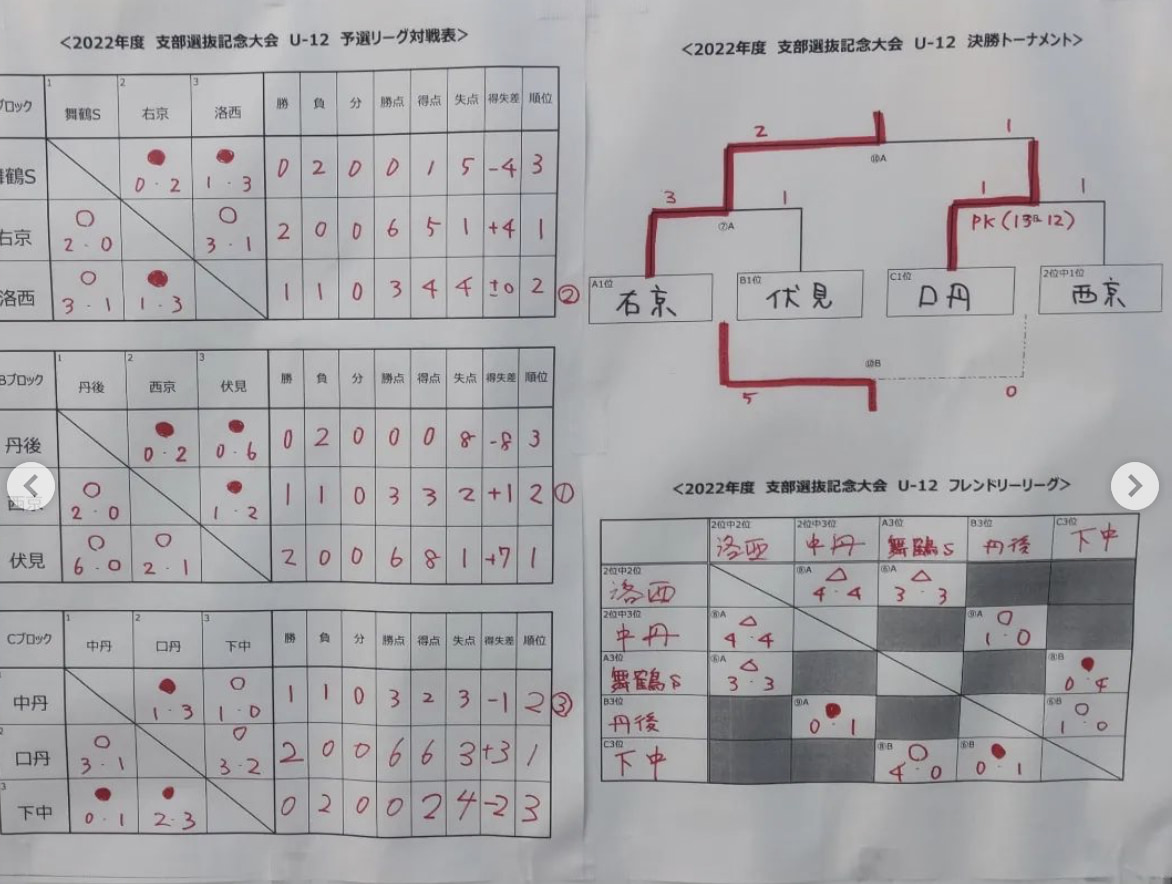 <2022年度 支部選抜記念大会 U-12 予選リーグ対戦表>
ブロック 1 舞鶴S 2 右京 3 洛西 勝 負 分 勝点 得点 失点 得失差 順位
舞鶴S ● 0・2 ● 1・3 0 2 0 0 1 5 -4 3
右京 ○ 2・0 ○ 3・1 2 0 0 6 5 1 +4 1
洛西 ○ 3・1 ● 1・3 1 1 0 3 4 4 ±0 2 ②
Bブロック 1 丹後 2 西京 3 伏見 勝 負 分 勝点 得点 失点 得失差 順位
丹後 ● 0・2 ● 0・6 0 2 0 0 0 8 -8 3
西京 ○ 2・0 ● 1・2 1 1 0 3 3 2 +1 2 ①
伏見 ○ 6・0 ○ 2・1 2 0 0 6 8 1 +7 1
Cブロック 1 中丹 2 口丹 3 下中 勝 負 分 勝点 得点 失点 得失差 順位
中丹 ● 1・3 ○ 1・0 1 1 0 3 2 3 -1 2 ③
2 口丹 ○ 3・1 ○ 3・2 2 0 0 6 6 3 +3 1
3 下中 ● 0・1 ● 2・3 0 2 0 0 2 4 -2 3
<2022年度 支部選抜記念大会 U-12 決勝トーナメント>
2 1
⑩A
3 1 1 1
⑦A PK(13 12)
A1位 右京 B1位 伏見 C1位 口丹 2位中1位 西京
⑩B
5 0
<2022年度 支部選抜記念大会 U-12 フレンドリーリーグ>
2位中2位 洛西 2位中3位 中丹 A3位 舞鶴S B3位 丹後 C3位 下中
2位中2位 洛西 ⑧A △ 4・4 ⑥A △ 3・3
2位中3位 中丹 ⑧A △ 4・4 ⑨A ○ 1・0
A3位 舞鶴S ⑥A △ 3・3 ⑧B ● 0・4
B3位 丹後 ⑨A ● 0・1 ⑥B ○ 1・0
C3位 下中 ⑧B ○ 4・0 ⑥B ● 0・1